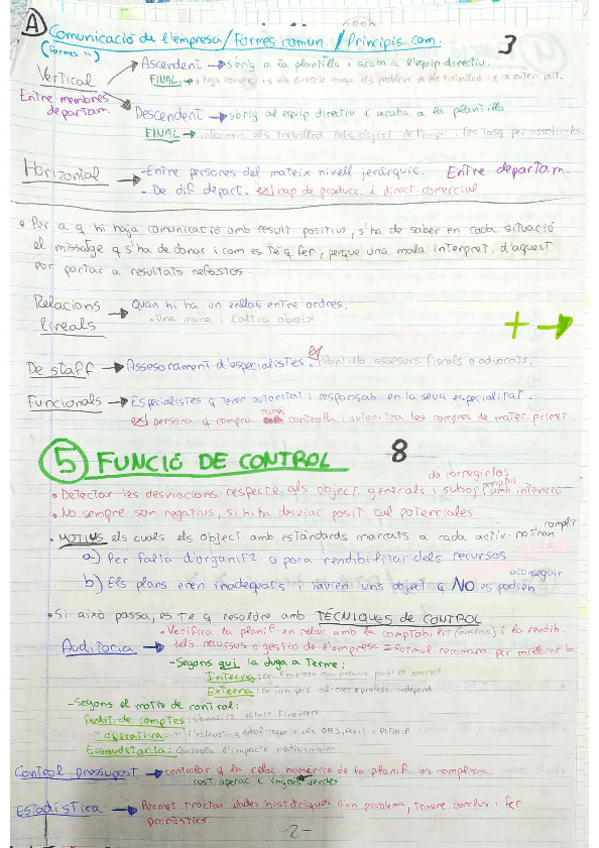 A Comunicació de l'empresa / Formes comun. / Principis com. 3
(formes 4)
Vertical → Ascendent → sorig a la plantilla i acaba a l'equip directiu.
FINAL →
Entre membres departam.
Descendent → sorig al equip directiu i acaba a la plantilla
FINAL → informen als treballad dels object de l'empr i les tasq per assolir-los
Horizontal → - Entre persones del mateix nivell jeràrquic. Entre departam.
- De dif. depart. ex/ cap de producc. i direct. comercial
• Per a q hi haja comunicació amb result positius, s'ha de saber en cada situació
el missatge q s'ha de donar i com es té q fer, perque una mala interpret. d'aquest
por portar a resultats nefastos.
Relacions lineals → Quan hi ha un enllaç entre ordres.
• Una mana i l'altra obeix
+ →
De staff → Assesorament d'especialistes. ex/ Plantilla assesors fiscals o advocats.
Funcionals → Especialistes q tenen autoritat i responsab. en la seua especialitat.
ex/ persona q compra només controla i autoritza les compres de mater. primer.
5 FUNCIÓ DE CONTROL 8
• Detectar les desviacions respecte als object. generals i suboj. previstos amb intenció de corregirlos
• No sempre son negatius, si hi ha desviac posit. cal potenciales
• MOTIUS els quals els object amb estàndards marcats a cada activ. no s'han complit
a) Per falta d'organitz. o poca rendibilitat dels recursos
b) Els plans eren inadequats i havien uns object q NO es podien aconseguir
• Si això passa, es té q resoldre amb TÈCNIQUES de CONTROL
Auditoria → • Verifica la planif. en relac amb la comptabilit (auditor) i la rendib.
dels recursos o gestió de l'empresa = formul recomana per millorar-la.
- Segons qui la duga a terme:
Interna: en l'empresa com mitjans propis de control
Externa: per alienes o profess. independ
- Segons el motiu de control:
Audit. de comptes:
" operativa:
Ecoauditoria: Controla l'impacte mediambien
Control pressupost → controlar q la relac numèrica de la planif. es complisca.
cost. operac i ingres. vendes
Estadística → Permet tractar dades històriques d'un problema, traure conclus i fer
pronòstics
-2-